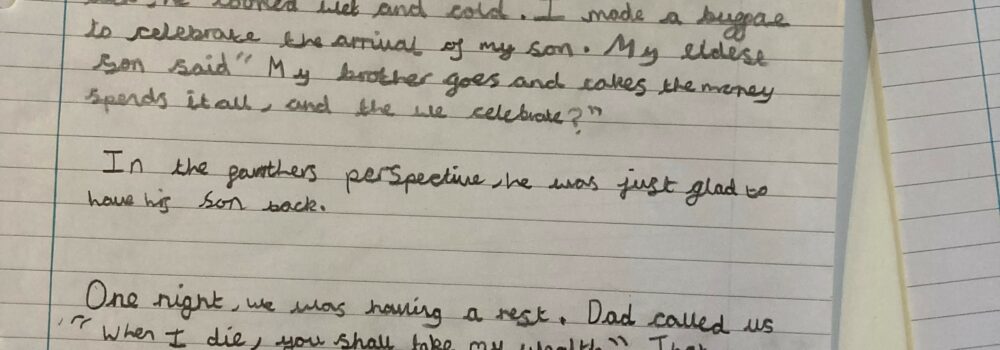 he looked wet and cold. I made a buggae
to celebrate the arrival of my son. My eldest
son said" My brother goes and takes the money
spends it all, and the we celebrate?"
In the panthers perspective, he was just glad to
have his son back.
One night, we was having a rest. Dad called us
"When I die, you shall take my wealth" That